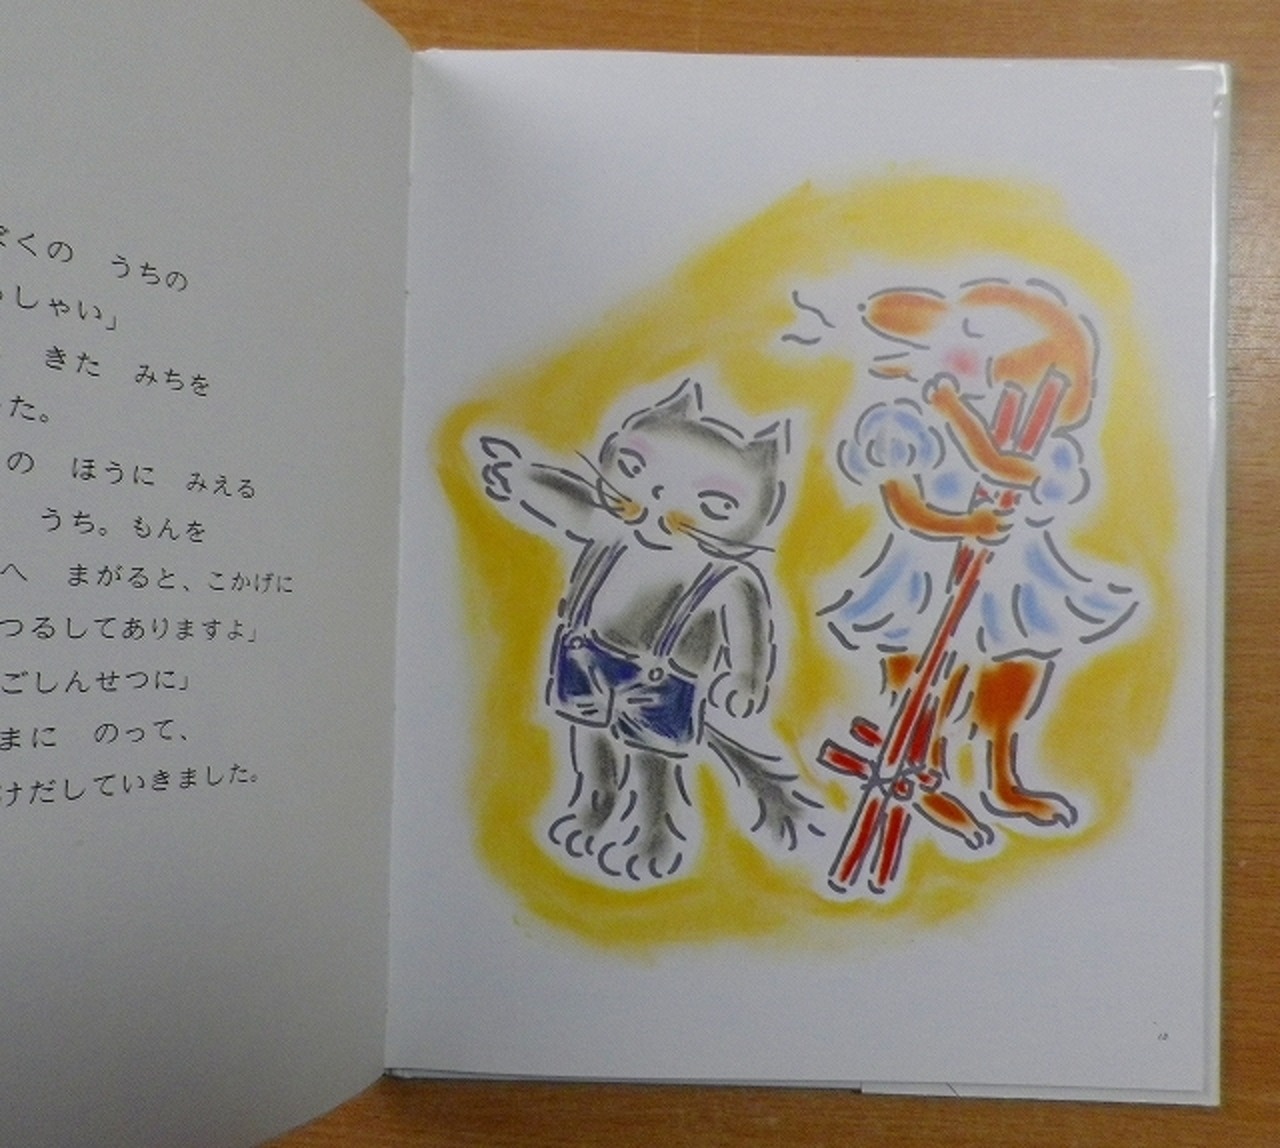 くの　うちの
しゃい」
きた　みちを
た。
の　ほうに　みえる
うち。もんを
へ　まがると、こかげに
つるしてありますよ」
ごしんせつに」
まに　のって、
けだしていきました。